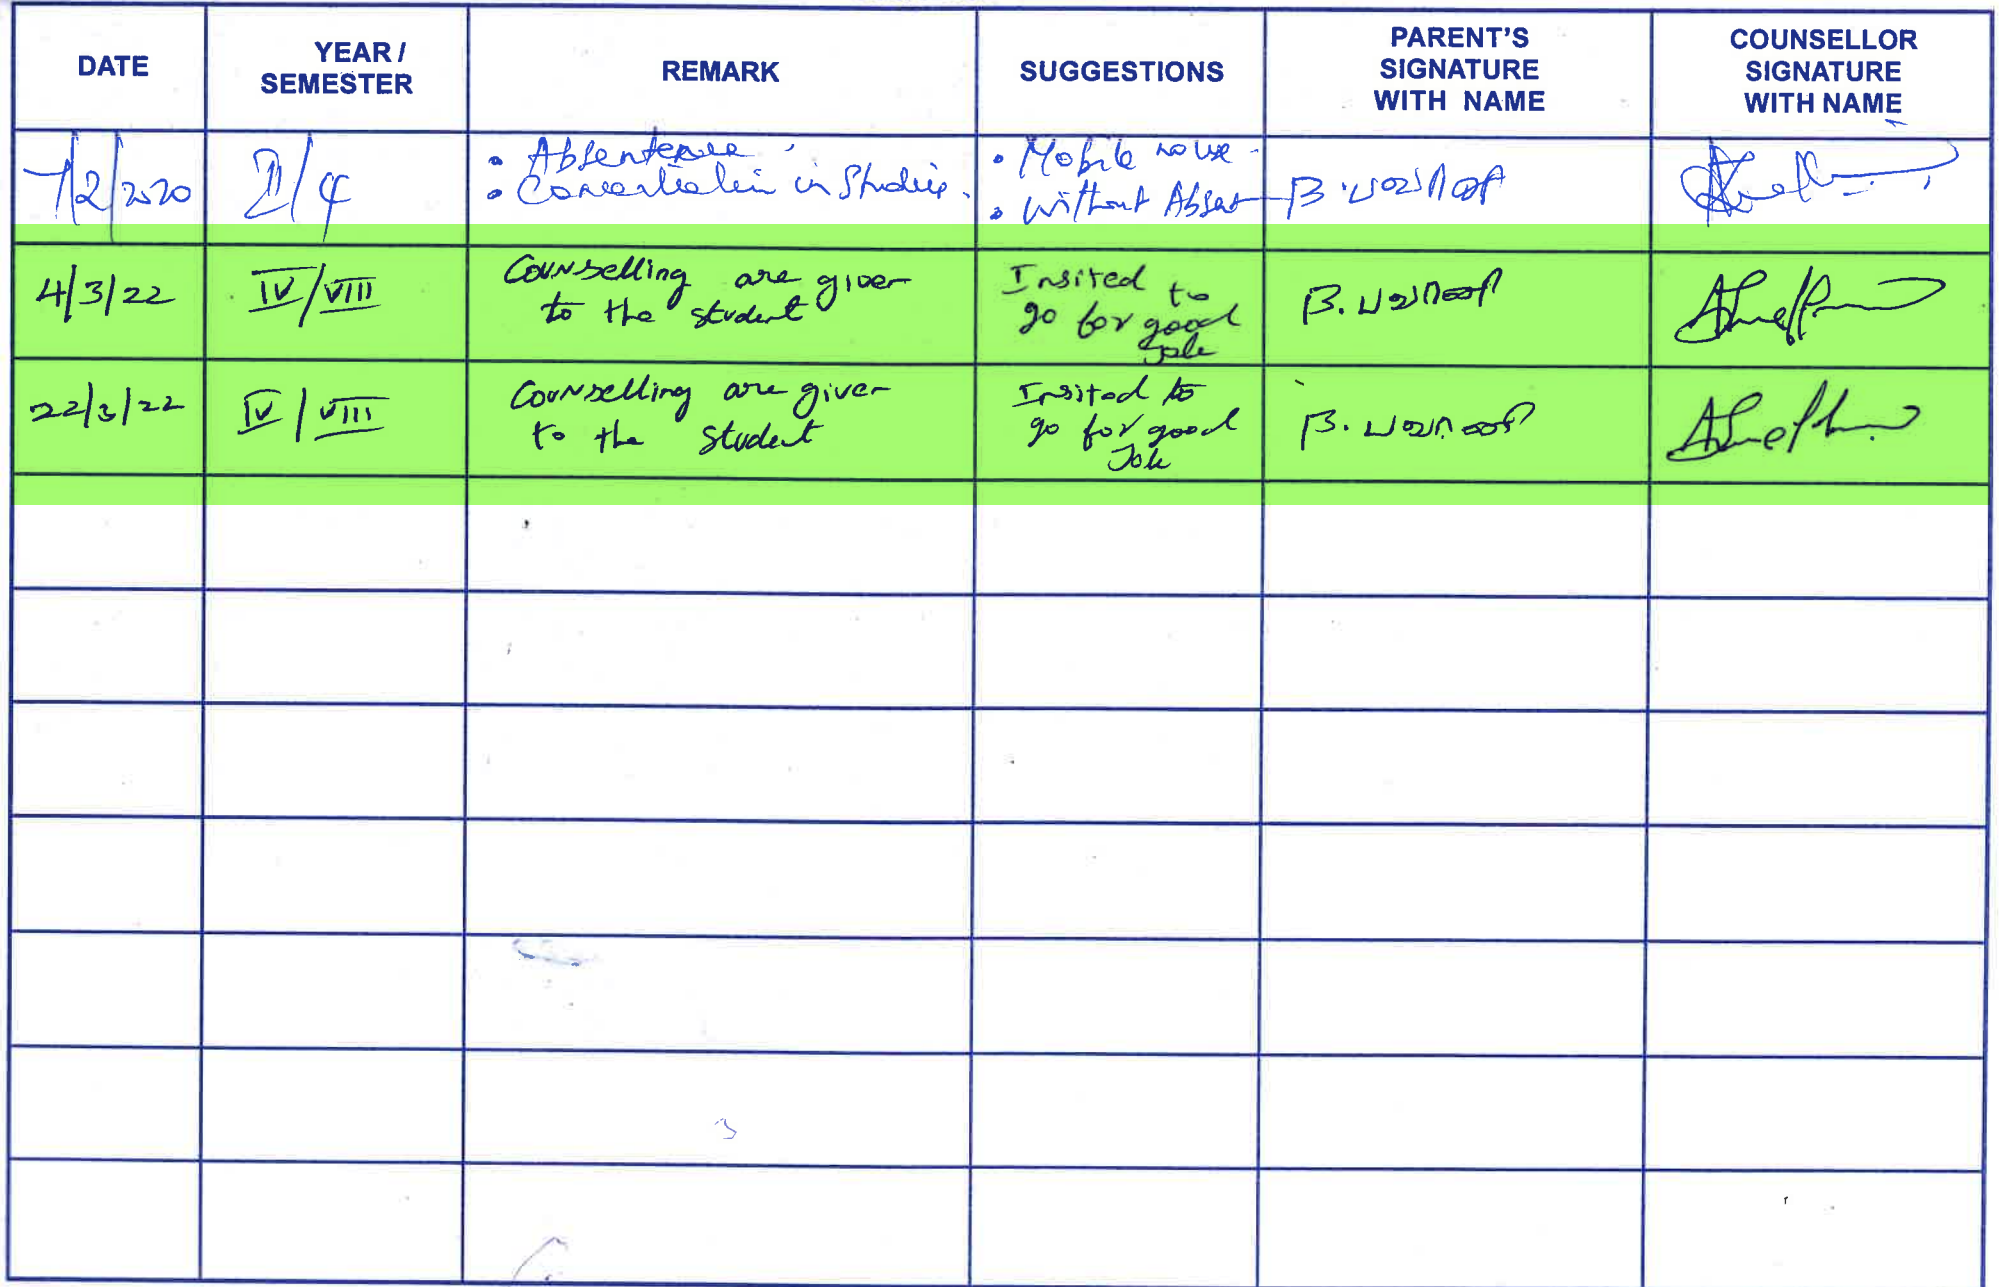 DATE
YEAR /
SEMESTER
REMARK
SUGGESTIONS
PARENT'S
SIGNATURE
WITH NAME
COUNSELLOR
SIGNATURE
WITH NAME
7/2/2020
II/4
• 
• in Studies.
• Mobile no use.
• Without Absent
4/3/22
IV/VIII
Counselling are given
to the student
Insited to
go for good
Job
B.
22/3/22
IV/VIII
Counselling are given
to the student
Insited to
go for good
Job
B.